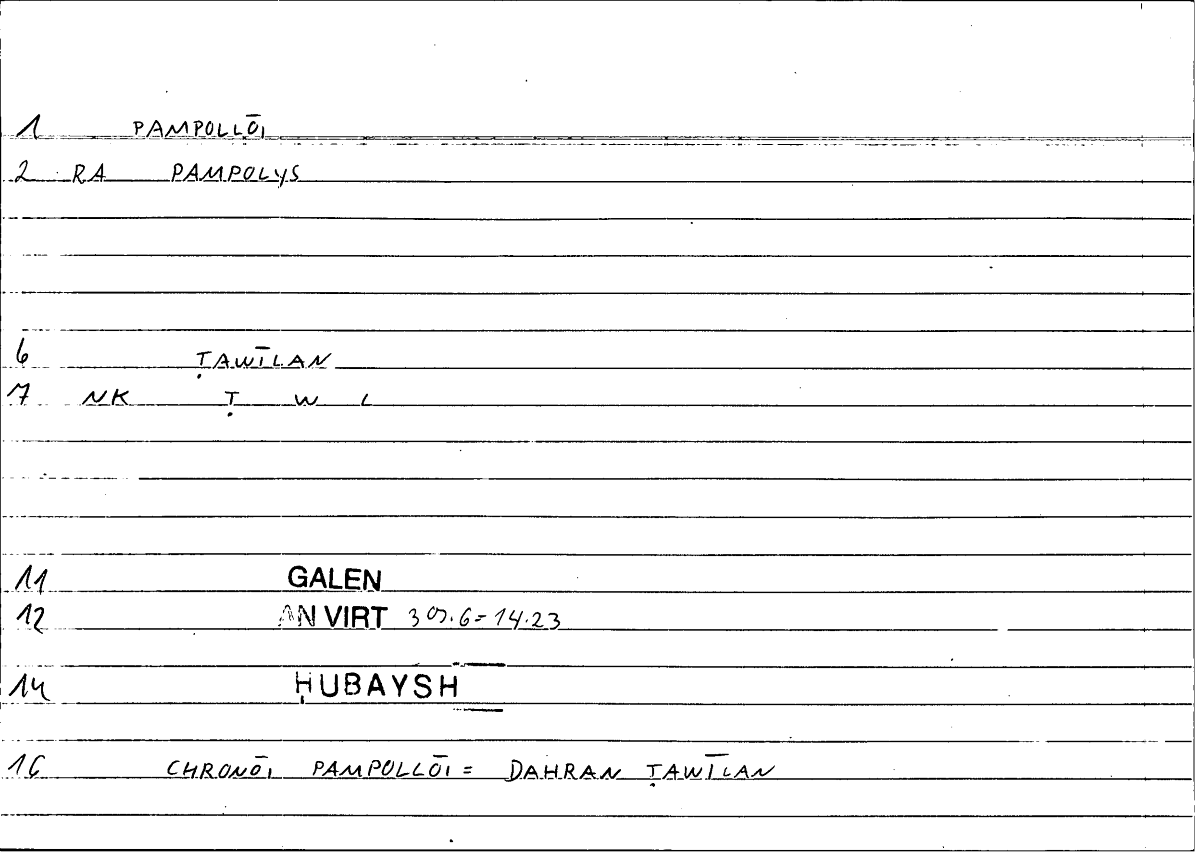 1 PAMPOLLŌI
2 RA PAMPOLYS
6 ṬAWĪLAN
7 NK Ṭ W L
11 GALEN
12 AN VIRT 3 6=14.23
14 ḤUBAYSH
16 CHRONŌI PAMPOLLŌI = DAHRAN ṬAWĪLAN